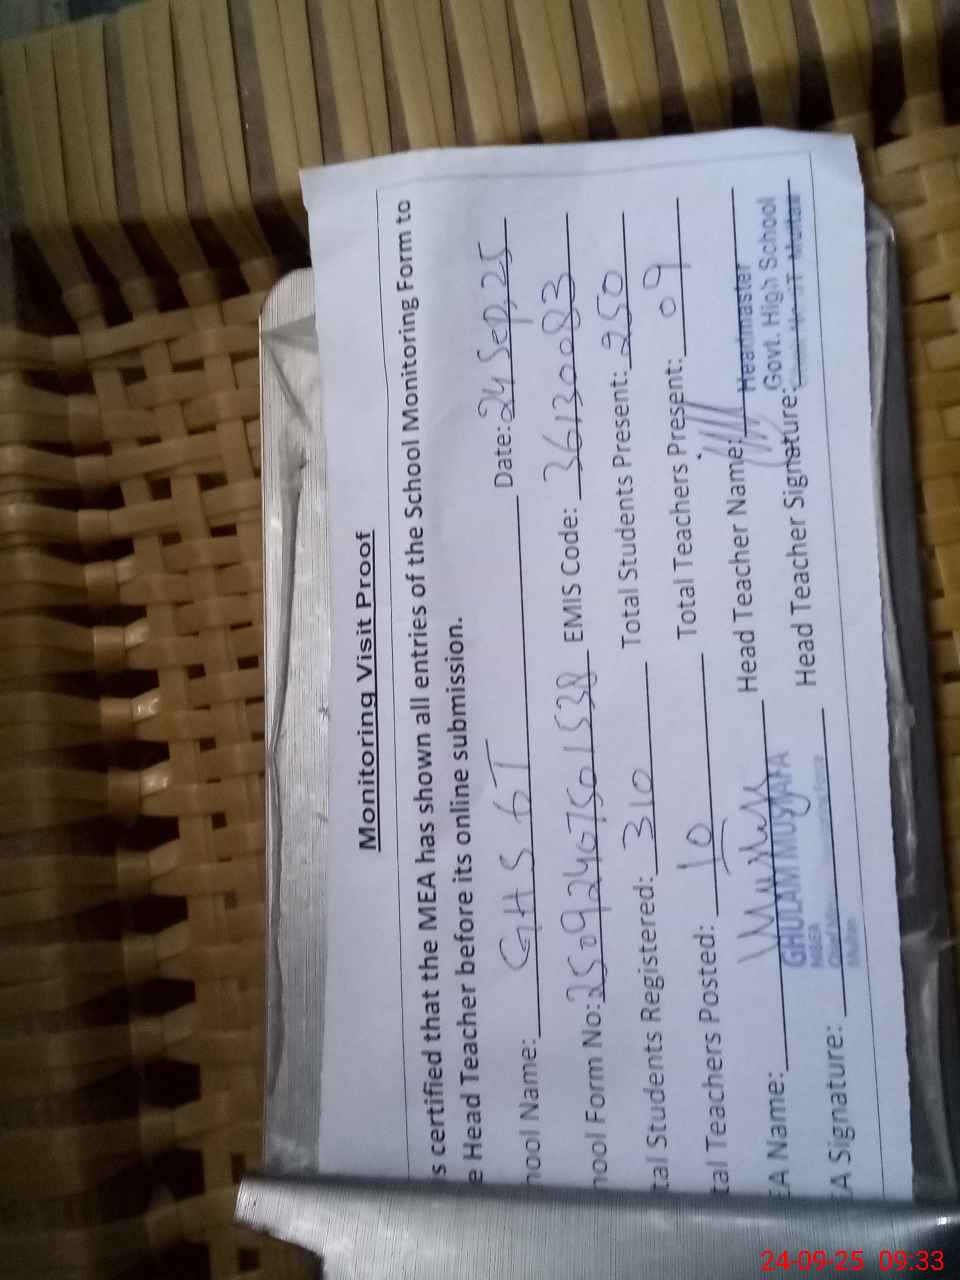 Monitoring Visit Proof
s certified that the MEA has shown all entries of the School Monitoring Form to
e Head Teacher before its online submission.
hool Name: GHS 6T Date: 24 Sep, 25
hool Form No: EMIS Code: 36130083
tal Students Registered: 310 Total Students Present: 250
tal Teachers Posted: 10 Total Teachers Present: 09
EA Name: Head Teacher Name: Headmaster
GHULAM MUSTAFA Govt. High School
MEA
EA Signature: Head Teacher Signature: Multan
Multan
24-09-25 09:33